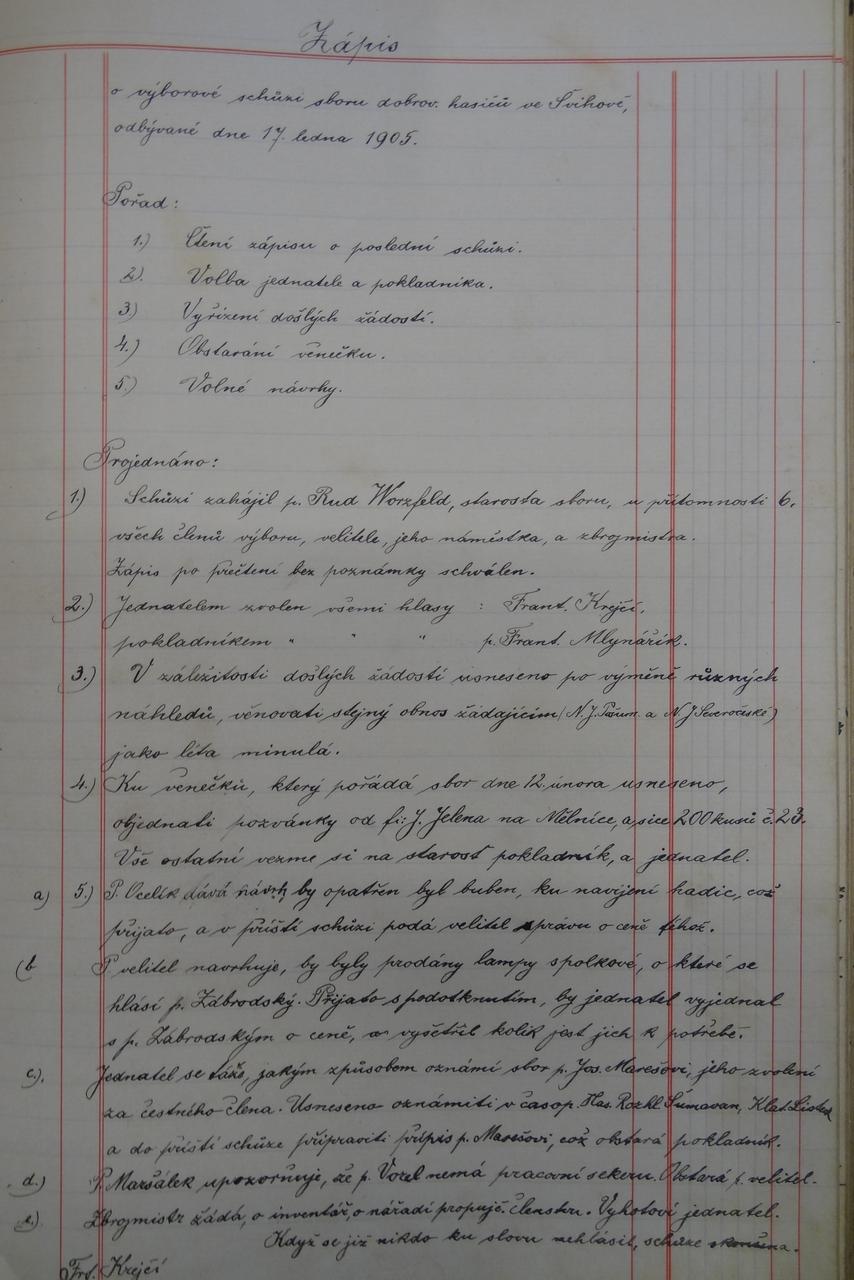 Zápis
o výborové schůzi sboru dobrov. hasičů ve Švihově,
odbývané dne 17. ledna 1905.
Pořad:
1.) Čtení zápisu o poslední schůzi.
2). Volba jednatele a pokladníka.
3) Vyřízení došlých žádostí.
4.) Obstarání věnečku.
5.) Volné návrhy.
Projednáno:
1.) Schůzi zahájil p. Rud Worzfeld, starosta sboru, u přítomnosti 6.
všech členů výboru, velitele, jeho náměstka, a zbrojmistra.
Zápis po přečtení bez poznámky schválen.
2.) Jednatelem zvolen všemi hlasy : Frant. Krejčí,
pokladníkem " " " p. Frant. Mlynářík.
3.) V záležitosti došlých žádostí usneseno po výměně různých
náhledů, věnovati stejný obnos žádajícím (N. J. Pošum. a N J Severočeské)
jako léta minulá.
4.) Ku věnečku, který pořádá sbor dne 12. února usneseno,
objednati pozvánky od fi: J. Jelena na Mělníce, a sice 200 kusů č. 23.
Vše ostatní vezme si na starosť pokladník, a jednatel.
a) 5.) P. Ocelík dává návrh by opatřen byl buben, ku navíjení hadic, což
přijato, a v příští schůzi podá velitel zprávu o ceně téhož.
(b P velitel navrhuje, by byly prodány lampy spolkové, o které se
hlásí p. Zábrodský. Přijato s podotknutím, by jednatel vyjednal
s p. Zábrodským o ceně, a vyšetřil kolik jest jich k potřebě.
c). Jednatel se táže, jakým způsobem oznámí sbor p. Jos. Marešovi, jeho zvolení
za čestného člena. Usneseno oznámiti v časop. Has. Rozhl Šumavan, Klat. Listech
a do příští schůze připraviti přípis p. Marešovi, což obstará pokladník.
d.) P. Maršálek upozorňuje, že p. Vozel nemá pracovní sekeru. Obstará p. velitel.
e.) Zbrojmistr žádá, o inventář, o nářadí propujč. členstvu. Vyhotoví jednatel.
Když se již nikdo ku slovu nehlásil, schůze skončena.
Frt. Krejčí